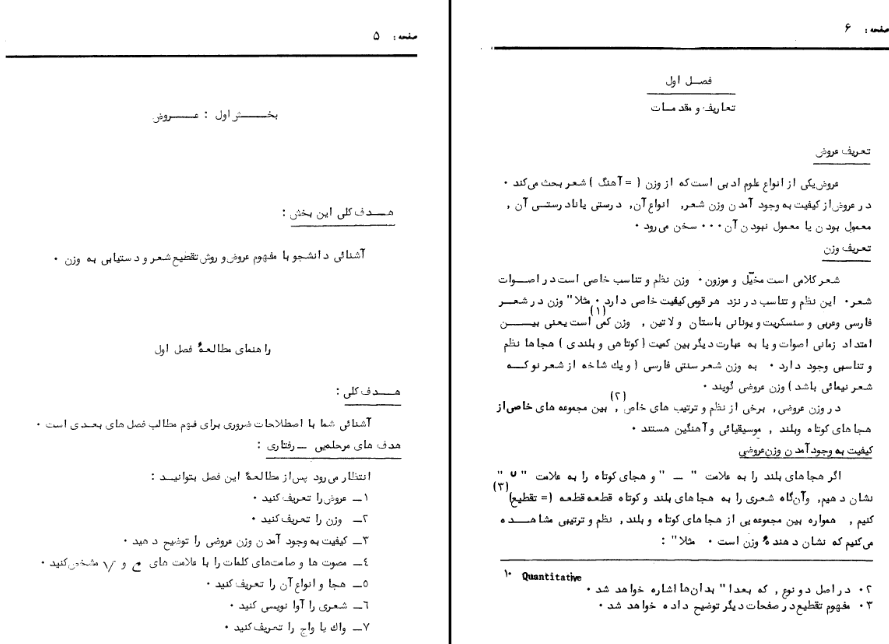 صفحه: ۵
بخش اول : عروض
هدف کلی این بخش :
آشنائی دانشجو با مفهوم عروض و روش تقطیع شعر و دستیابی به وزن .
راهنمای مطالعهٔ فصل اول
هدف کلی :
آشنائی شما با اصطلاحات ضروری برای فهم مطالب فصل های بعدی است .
هدف های مرحله‌یی ــ رفتاری :
انتظار می‌رود پس از مطالعهٔ این فصل بتوانید :
۱ــ عروض را تعریف کنید .
۲ــ وزن را تعریف کنید .
۳ــ کیفیت به وجود آمدن وزن عروضی را توضیح دهید .
۴ــ مصوت ها و صامت‌های کلمات را با علامت های م و v مشخص کنید .
۵ــ هجا و انواع آن را تعریف کنید .
۶ــ شعری را آوا نویسی کنید .
۷ــ واك یا واج را تعریف کنید .
صفحه: ۶
فصل اول
تعاریف و مقدمات
تعریف عروض
عروض یکی از انواع علوم ادبی است که از وزن ( = آهنگ ) شعر بحث می‌کند .
در عروض از کیفیت به وجود آمدن وزن شعر, انواع آن, درستی یا نادرستی آن ,
معمول بودن یا معمول نبودن آن ... سخن می‌رود .
تعریف وزن
شعر کلامی است مخیّل و موزون . وزن نظم و تناسب خاصی است در اصوات
شعر . این نظم و تناسب در نزد هر قومی کیفیت خاصی دارد . مثلا" وزن در شعر
فارسی وعربی و سنسکریت و یونانی باستان و لاتین , وزن کمّی(۱) است یعنی بین
امتداد زمانی اصوات و یا به عبارت دیگر بین کمیت ( کوتاهی و بلندی ) هجاها نظم
و تناسبی وجود دارد . به وزن شعر سنتی فارسی ( و یك شاخه از شعر نو که
شعر نیمائی باشد ) وزن عروضی گویند .
در وزن عروضی, برخی از نظم و ترتیب های خاص(۲), بین مجموعه های خاص از
هجاهای کوتاه وبلند , موسیقیائی و آهنگین هستند .
کیفیت به وجود آمدن وزن عروضی
اگر هجاهای بلند را به علامت " ــ " و هجای کوتاه را به علامت " U "
نشان دهیم, وآن‌گاه شعری را به هجاهای بلند و کوتاه قطعه قطعه (= تقطیع)(۳)
کنیم , همواره بین مجموعه‌یی از هجاهای کوتاه و بلند, نظم و ترتیبی مشاهده
می‌کنیم که نشان دهندهٔ وزن است . مثلا" :
۱. Quantitative
۲. در اصل دو نوع, که بعدا" بدان‌ها اشاره خواهد شد .
۳. مفهوم تقطیع در صفحات دیگر توضیح داده خواهد شد .